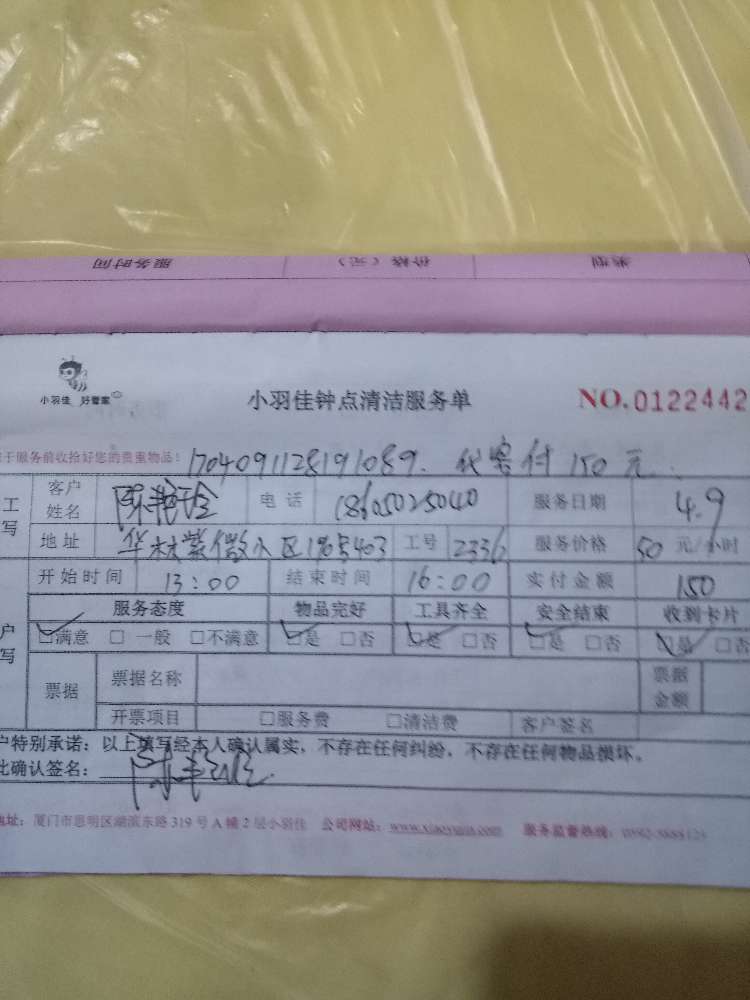 服务时间 价格（元） 类型
小羽佳 好管家
小羽佳钟点清洁服务单 NO.0122442
于服务前收拾好您的贵重物品：1704091128191089. 代客付150元.
工 写
客户姓名 电话 18605025040 服务日期 4.9
地址 华林紫薇小区 403 工号 2336 服务价格 50 元/小时
开始时间 13:00 结束时间 16:00 实付金额 150
户 写
服务态度 物品完好 工具齐全 安全结束 收到卡片
□满意 □一般 □不满意 □是 □否 □是 □否 □是 □否 □是 □否
票据 票据名称 票据金额
开票项目 □服务费 □清洁费 客户签名
户特别承诺：以上填写经本人确认属实，不存在任何纠纷，不存在任何物品损坏。
此确认签名：
地址：厦门市思明区湖滨东路319号A幢2层小羽佳 公司网站：www.xiaoyujia.com 服务监督热线：